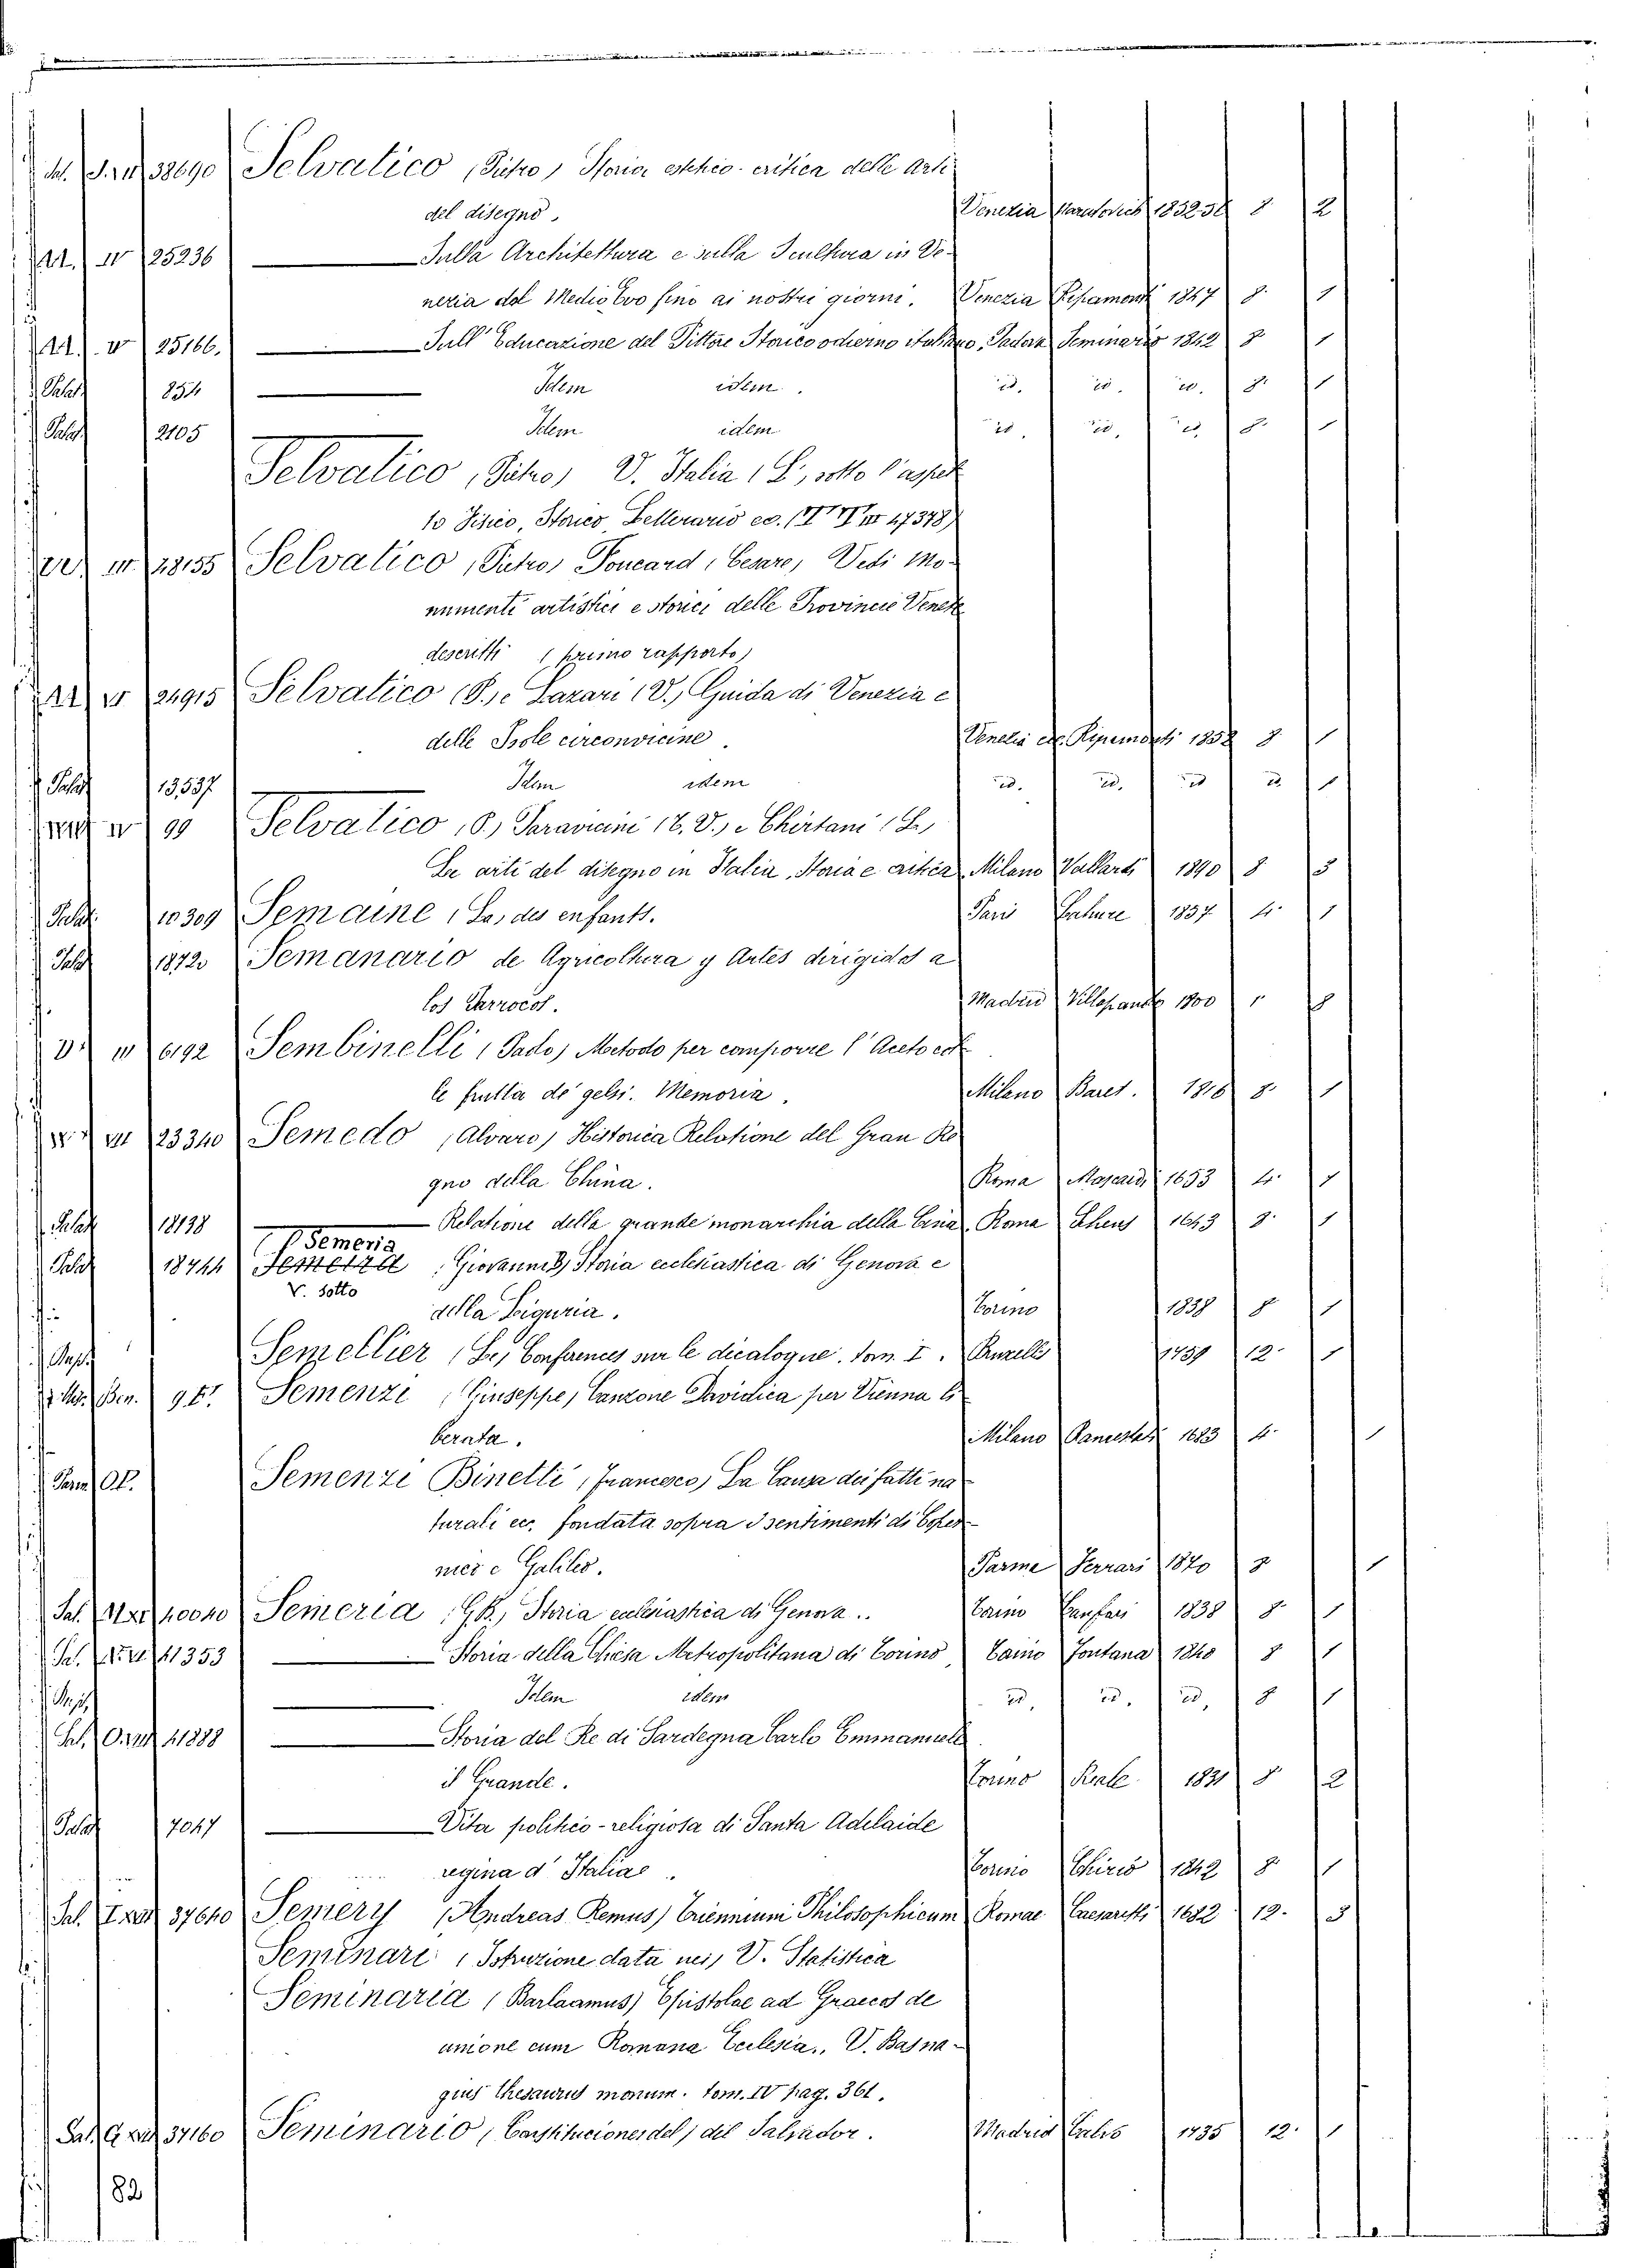 38690 Selvatico (Pietro) Storia estetico-critica delle Arti
del disegno. Venezia 1852 56 8 2
25236 Sulla Architettura e sulla Scultura in Ve-
nezia dal Medio Evo fino ai nostri giorni. Venezia Ripamonti 1847 8. 1
25166. Sull' Educazione del Pittore Storico odierno Italiano, Padova Seminario 1842 8 1
Palat. 854 Idem idem. id. id. id. 8. 1
Palat. 2105 Idem idem id. id. id. 8. 1
Selvatico (Pietro) V. Italia (L') sotto l'aspet
to Fisico, Storico Letterario ec. ( 47378)
28155 Selvatico (Pietro) Foucard (Cesare) Vedi Mo-
numenti artistici e storici delle Provincie Venete
descritti (primo rapporto)
24915 Selvatico (P.) e Lazari (V.) Guida di Venezia e
delle Isole circonvicine. Venezia Ripamonti 1852 8 1
Palat 13,537 Idem idem id. id. id id. 1
99 Selvatico (P.) Paravicini (T. V.) e Chirtani (L.)
Le arti del disegno in Italia, Storia e critica Milano Vallardi 1890 8 3
Palat. 10309 Semaine (La) des enfants. Paris Lahure 1857 4. 1
Palat 18720 Semanario de Agricoltura y Artes dirigido a
los Parrocos. Madrid Villalpando 1800
6192 Sembinelli (Pado) Metodo per comporre l'Aceto colle
le frutta de' gelsi. Memoria. Milano Baret. 1816 8. 1
23340 Semedo (Alvaro) Historica Relatione del Gran Re
gno della China. Roma Mascardi 1653 4. 1
Palat 18138 Relatione della grande monarchia della Cina Roma Scheus 1643 8. 1
Semeria
Palat 18744 Semeria (Giovanni B.) Storia ecclesiastica di Genova e
V. sotto
della Liguria. Torino 1838 8 1
Semellier (Le) Conferences sur le dicalogue. tom. I. Bruxelles 1759 12. 1
Semenzi (Giuseppe) Canzone Davidica per Vienna li
berata. Milano 1683 4. 1
Semenzi Binetti (Francesco) La Causa dei fatti na
turali ec. fondata sopra I sentimenti di Coper
nico e Galileo. Parma Ferrari 1870 8 1
40040 Semeria (G.B.) Storia ecclesiastica di Genova.. Torino Canfari 1838 8. 1
41353 Storia della Chiesa Metropolitana di Torino Torino Fontana 1840 8 1
Idem idem id. id. id. 8 1
41888 Storia del Re di Sardegna Carlo Emmanuele
il Grande. Torino Reale 1831 8 2
Palat 7047 Vita politico-religiosa di Santa Adelaide
regina d'Italia. Torino Chirio 1842 8 1
37640 Semery (Andreas Remus) Triennium Philosophicum Romae Caesaretti 1682 12. 3
Seminari (Istruzione data nei) V. Statistica
Seminaria (Barlaamus) Epistolae ad Graecos de
unione cum Romana Ecclesia., V. Basna-
gius Thesaurus monum. tom. IV pag. 361.
37160 Seminario (Constituciones del) del Salvador. Madrid 1735 12. 1
82